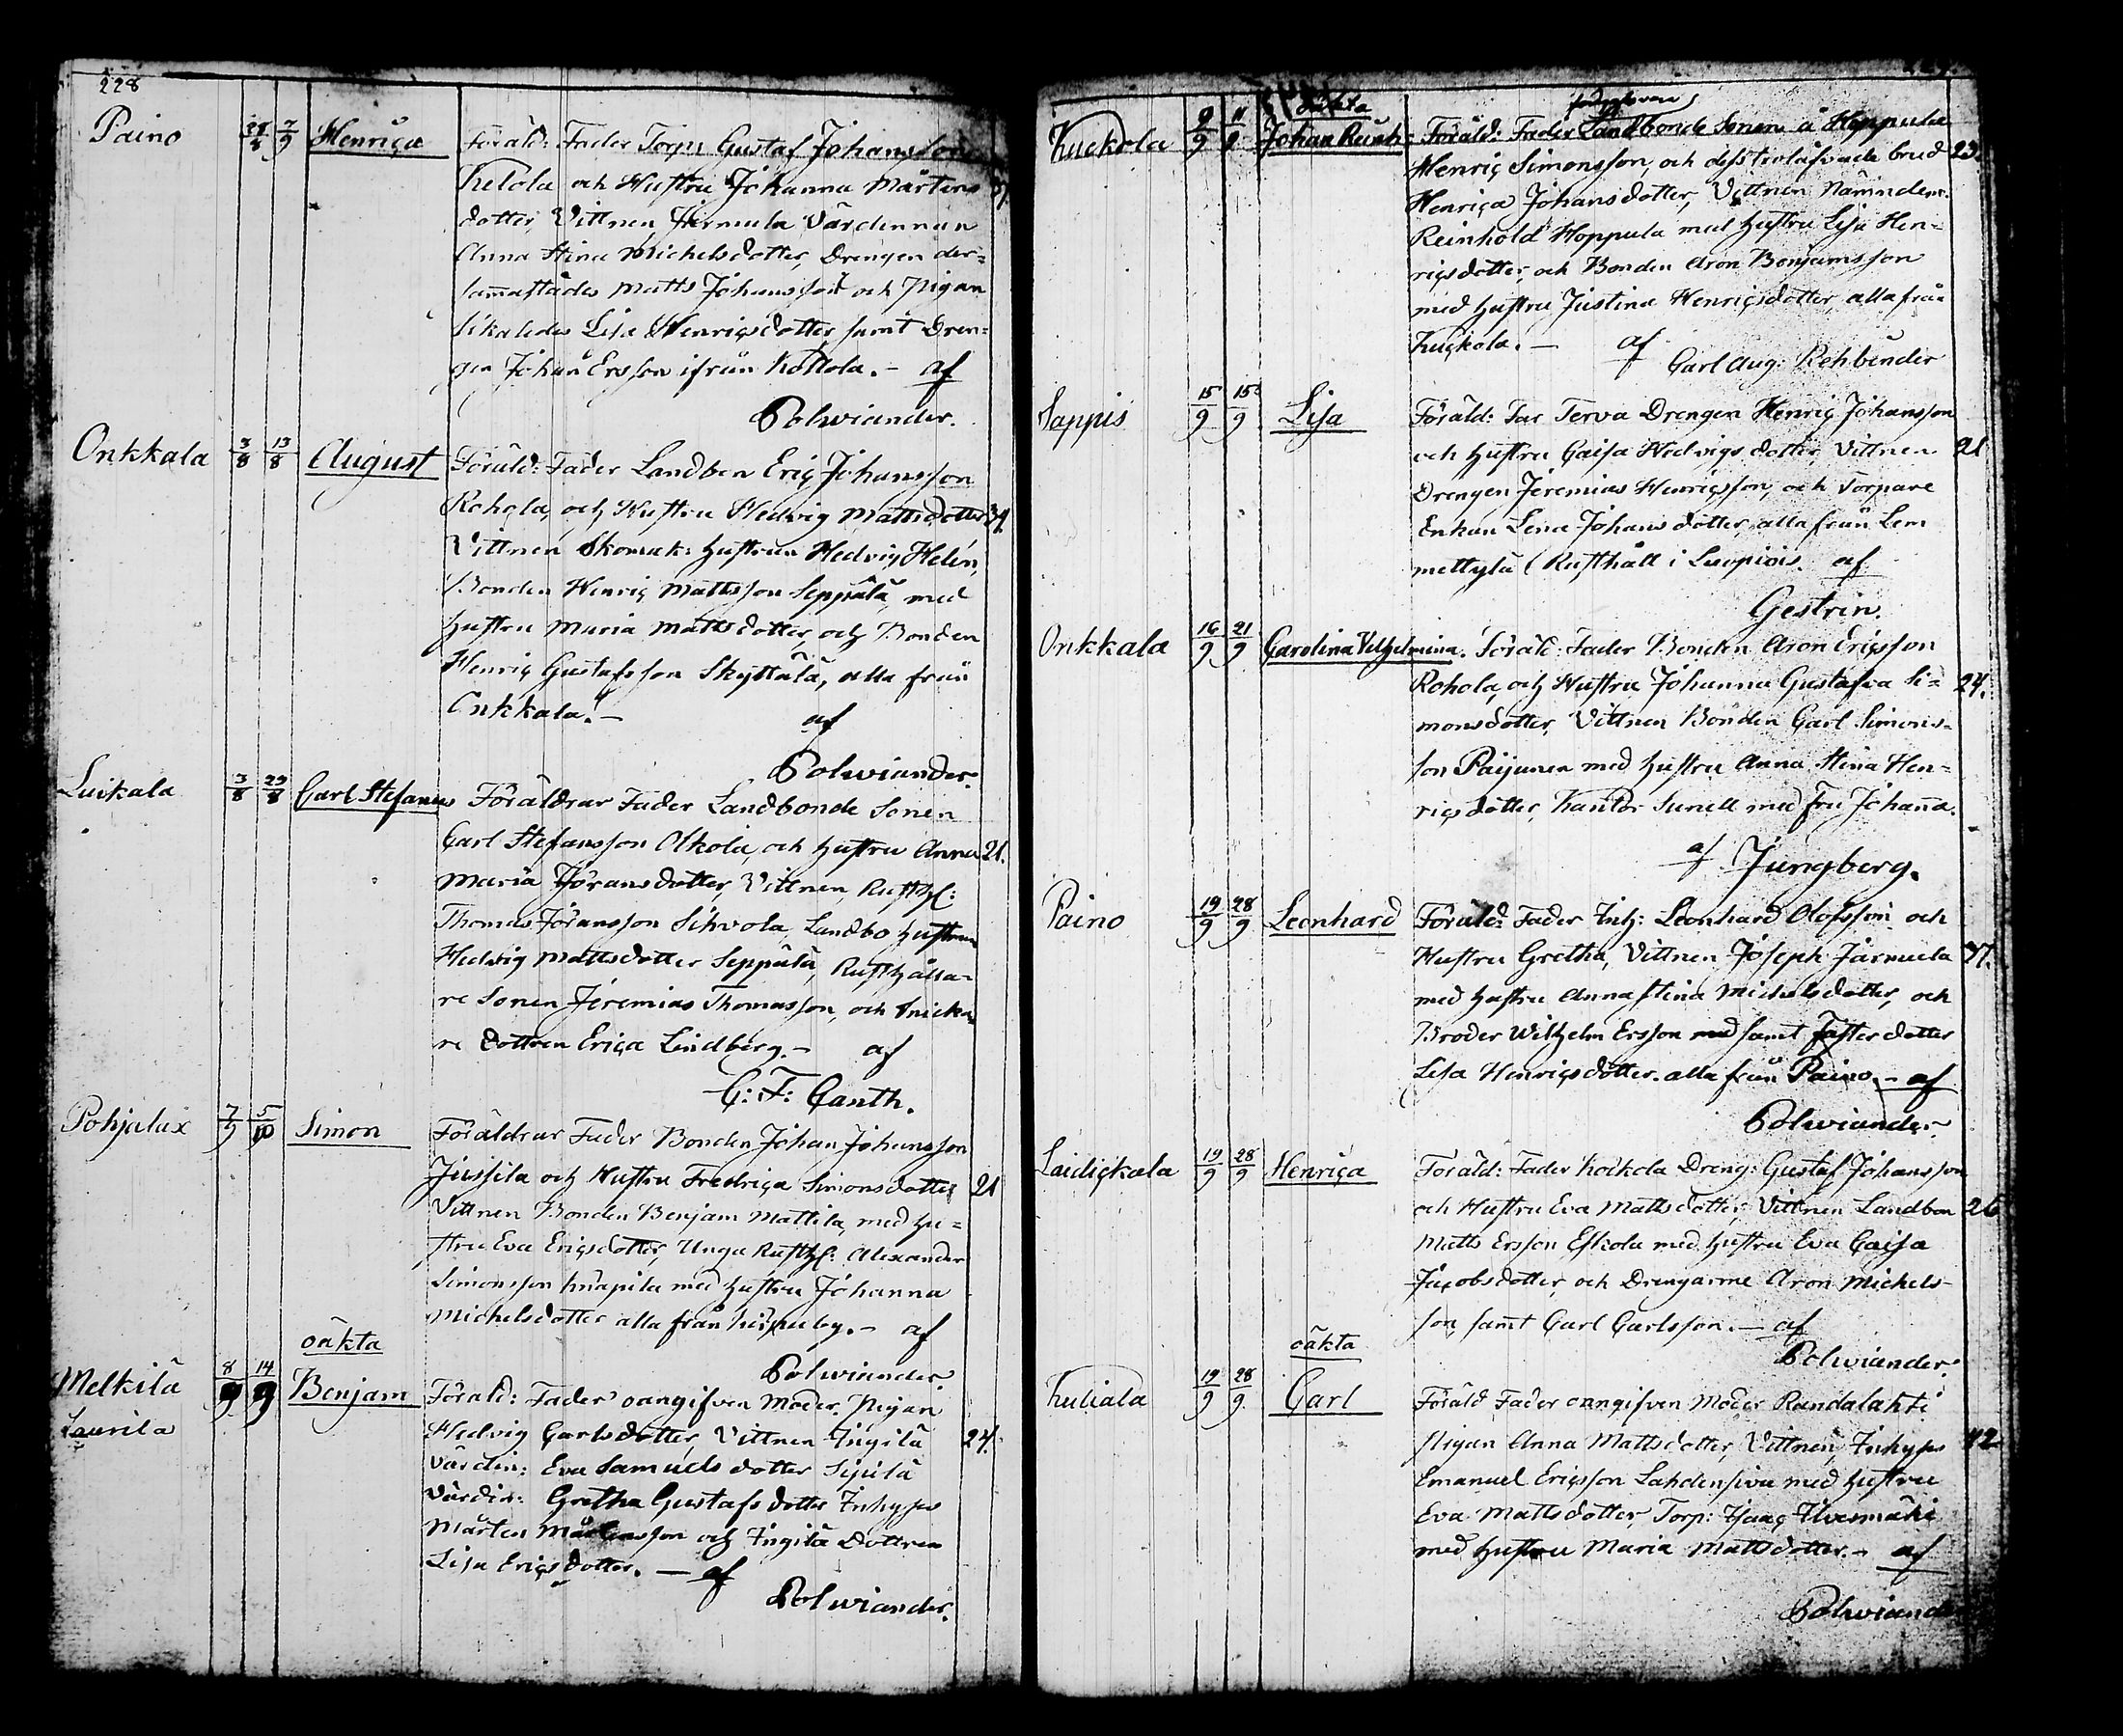 228
Paino 7/9 Henrica Föräld: Fader Torp: Gustaf Johansson
Ketola och Hustru Johanna Mårtens
dotter, Vittnen, Järmula Värdinnan
Anna Stina Michelsdotter, Drengen der=
sammastädes Matts Johansson och Pigan
likaledes Lisa Henricsdotter samt Dren=
gen Johan Ersson ifrån Kottola.- af
Polviander.
Onkkala 3/8 13/8 August Föräld: Fader Landbon Eric Johansson
Rohola, och Hustru Hedvig Mattsdotter 34
Vittnen Skomak: Hustrun Hedvig Helén,
Bonden Henric Mattsson Seppälä, med
Hustru Maria Mattsdotter, och Bonden
Henric Gustafsson Skyttälä, alla från
Onkkala.- af
Polviander.
Luikala 3/8 29/8 Carl Stefanus Föräldrar Fader Landbonde Sonen
Carl Stefansson Olkola, och Hustru Anna 21.
Maria Jöransdotter, Vittnen, Rusth:
Thomas Jöransson Sihvola, Landbo Hustrun
Hedvig Mattsdotter Seppälä, Rusthålla=
re Sonen Jeremias Thomasson, och Snicka=
re dottren Erica Lindberg.- af
C: F: Canth.
Pohjalax 7/9 5/10 Simon Föräldrar Fader Bonden Johan Johansson
Jussila och Hustru Fredrica Simonsdotter 21
Vittnen Bonden Benjam Mattila, med Hu=
stru Eva Ericsdotter, Unga Rusth: Alexander
Simonsson Knapila med Hustru Johanna
Michelsdotter alla från by.- af
Polviander
oäkta
Melkilä 8/9 14/9 Benjam Föräld: Fader oangifven Moder, Pigan
Laurila Hedvig Carlsdotter, Vittnen Ingilä 24.
Värdin: Eva Samuels dotter Sipilä
Värdin: Gretha Gustafs dotter Inhyses
Mårten Mårtensson och Ingilä Dottren
Lisa Ericsdotter.- af
Polviander.
oäkta
Kuckola 9/9 11/9 Johan Reinh: Föräld: Fader Landbonde Sonen å Hoppula
Henric Simonsson, och dess trolåfvade brud 23.
Henrica Johansdotter, Vittnen Nämndem:
Reinhold Hoppula med Hustru Lisa Hen=
ricsdotter, och Bonden Aron Benjamsson
med Hustru Justina Henricsdotter, alla från
Kuckola.- af
Carl Aug: Rehbinder
Sappis 15/9 15/9 Lisa Föräld: Far Terva Drengen Henric Johansson
och Hustru Caisa Hedvigs dotter, Vittnen 21
Drengen Jeremias Henricsson, och Torpare
Enkan Lena Johans dotter, alla från Lem
mettylä (Rusthåll i Luopiois. af
Gestrin.
Onkkala 16/9 21/9 Carolina Vilhelmina. Föräld: Fader Bonden Aron Ericsson
Rohola, och Hustru Johanna Gustafva Si= 24.
monsdotter, Vittnen Bonden Carl Simons=
son Paijunen med Hustru Anna Stina Hen=
ricsdotter, Kantor Sunell med fru Johanna.
af Jungberg.
Paino 19/9 28/9 Leonhard Föräld: Fader Inh: Leonhard Olofsson och
Hustru Gretha, Vittnen Joseph Järmula 37.
med Hustru Anna Stina Michelsdotter, och
Broder Wilhelm Ersson med samt Faster dotter
Lisa Henricsdotter. alla från Paino.- af
Polviander
Laidickala 19/9 28/9 Henrica Föräld: Fader Koikola Dreng: Gustaf Johansson
och Hustru Eva Mattsdotter, Vittnen Landbon 26
Matts Ersson Eskola med Hustru Eva Caisa
Jacobsdotter, och Drengarne Aron Michels=
son samt Carl Carlsson.- af
Polviander.
oäkta
Kuliala 19/9 28/9 Carl Föräld Fader oangifven Moder Randalahti
Pigan Anna Mattsdotter, Vittnen, Inhyses 42
Emanuel Ericsson Lahdensivu med Hustru
Eva Mattsdotter, Torp: Isaac Ilvesmäki
med Hustru Maria Mattsdotter.- af
Polviander